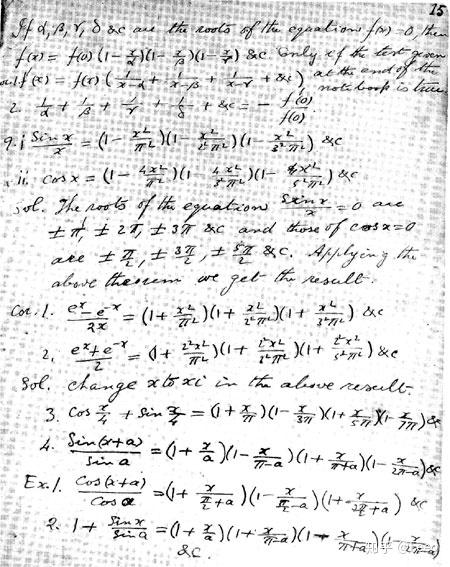 15
If α, β, γ, δ &c are the roots of the equation f(x)=0, then
f(x) = f(0) (1 - x/α)(1 - x/β)(1 - x/γ) &c. Only if the test given at the end of the notebook is true.
Cor. 1 f'(x) = f(x) (1/(x-α) + 1/(x-β) + 1/(x-γ) + &c)
2. 1/α + 1/β + 1/γ + 1/δ + &c = - f'(0)/f(0).
9. i Sin x/x = (1 - x²/π²)(1 - x²/2²π²)(1 - x²/3²π²) &c
ii. cos x = (1 - 4x²/π²)(1 - 4x²/3²π²)(1 - 4x²/5²π²) &c
Sol. The roots of the equation Sin x/x = 0 are
±π, ±2π, ±3π &c and those of cos x = 0
are ±π/2, ±3π/2, ±5π/2 &c. Applying the
above theorem we get the result.
Cor. 1. (e^x - e^-x)/2x = (1 + x²/π²)(1 + x²/2²π²)(1 + x²/3²π²) &c
2. (e^x + e^-x)/2 = (1 + 2²x²/π²)(1 + 2²x²/3²π²)(1 + 2²x²/5²π²) &c
Sol. Change x to xi in the above result.
3. Cos x/4 + Sin x/4 = (1 + x/π)(1 - x/3π)(1 + x/5π)(1 - x/7π) &c
4. Sin(x+a)/Sin a = (1 + x/a)(1 - x/(π-a))(1 + x/(π+a))(1 - x/(2π-a)) &c
Ex. 1. Cos(x+a)/Cos a = (1 + x/(π/2+a))(1 - x/(π/2-a))(1 + x/(3π/2+a)) &c
2. 1 + Sin x/Sin a = (1 + x/a)(1 + x/(π-a))(1 - x/(π+a))(1 - x/(2π-a))
&c.
知乎